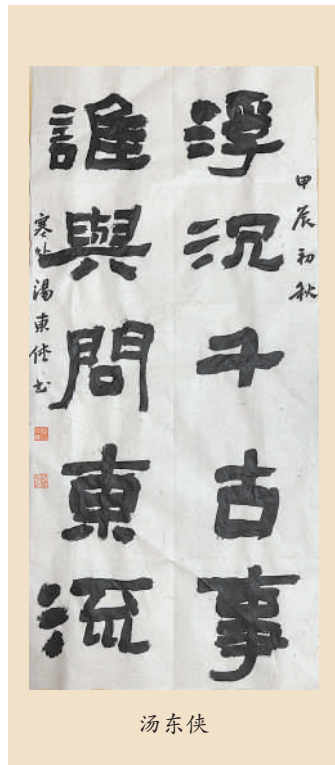 甲辰初秋
浮沉千古事
誰與問東流
寒 湯東俠书
汤东侠